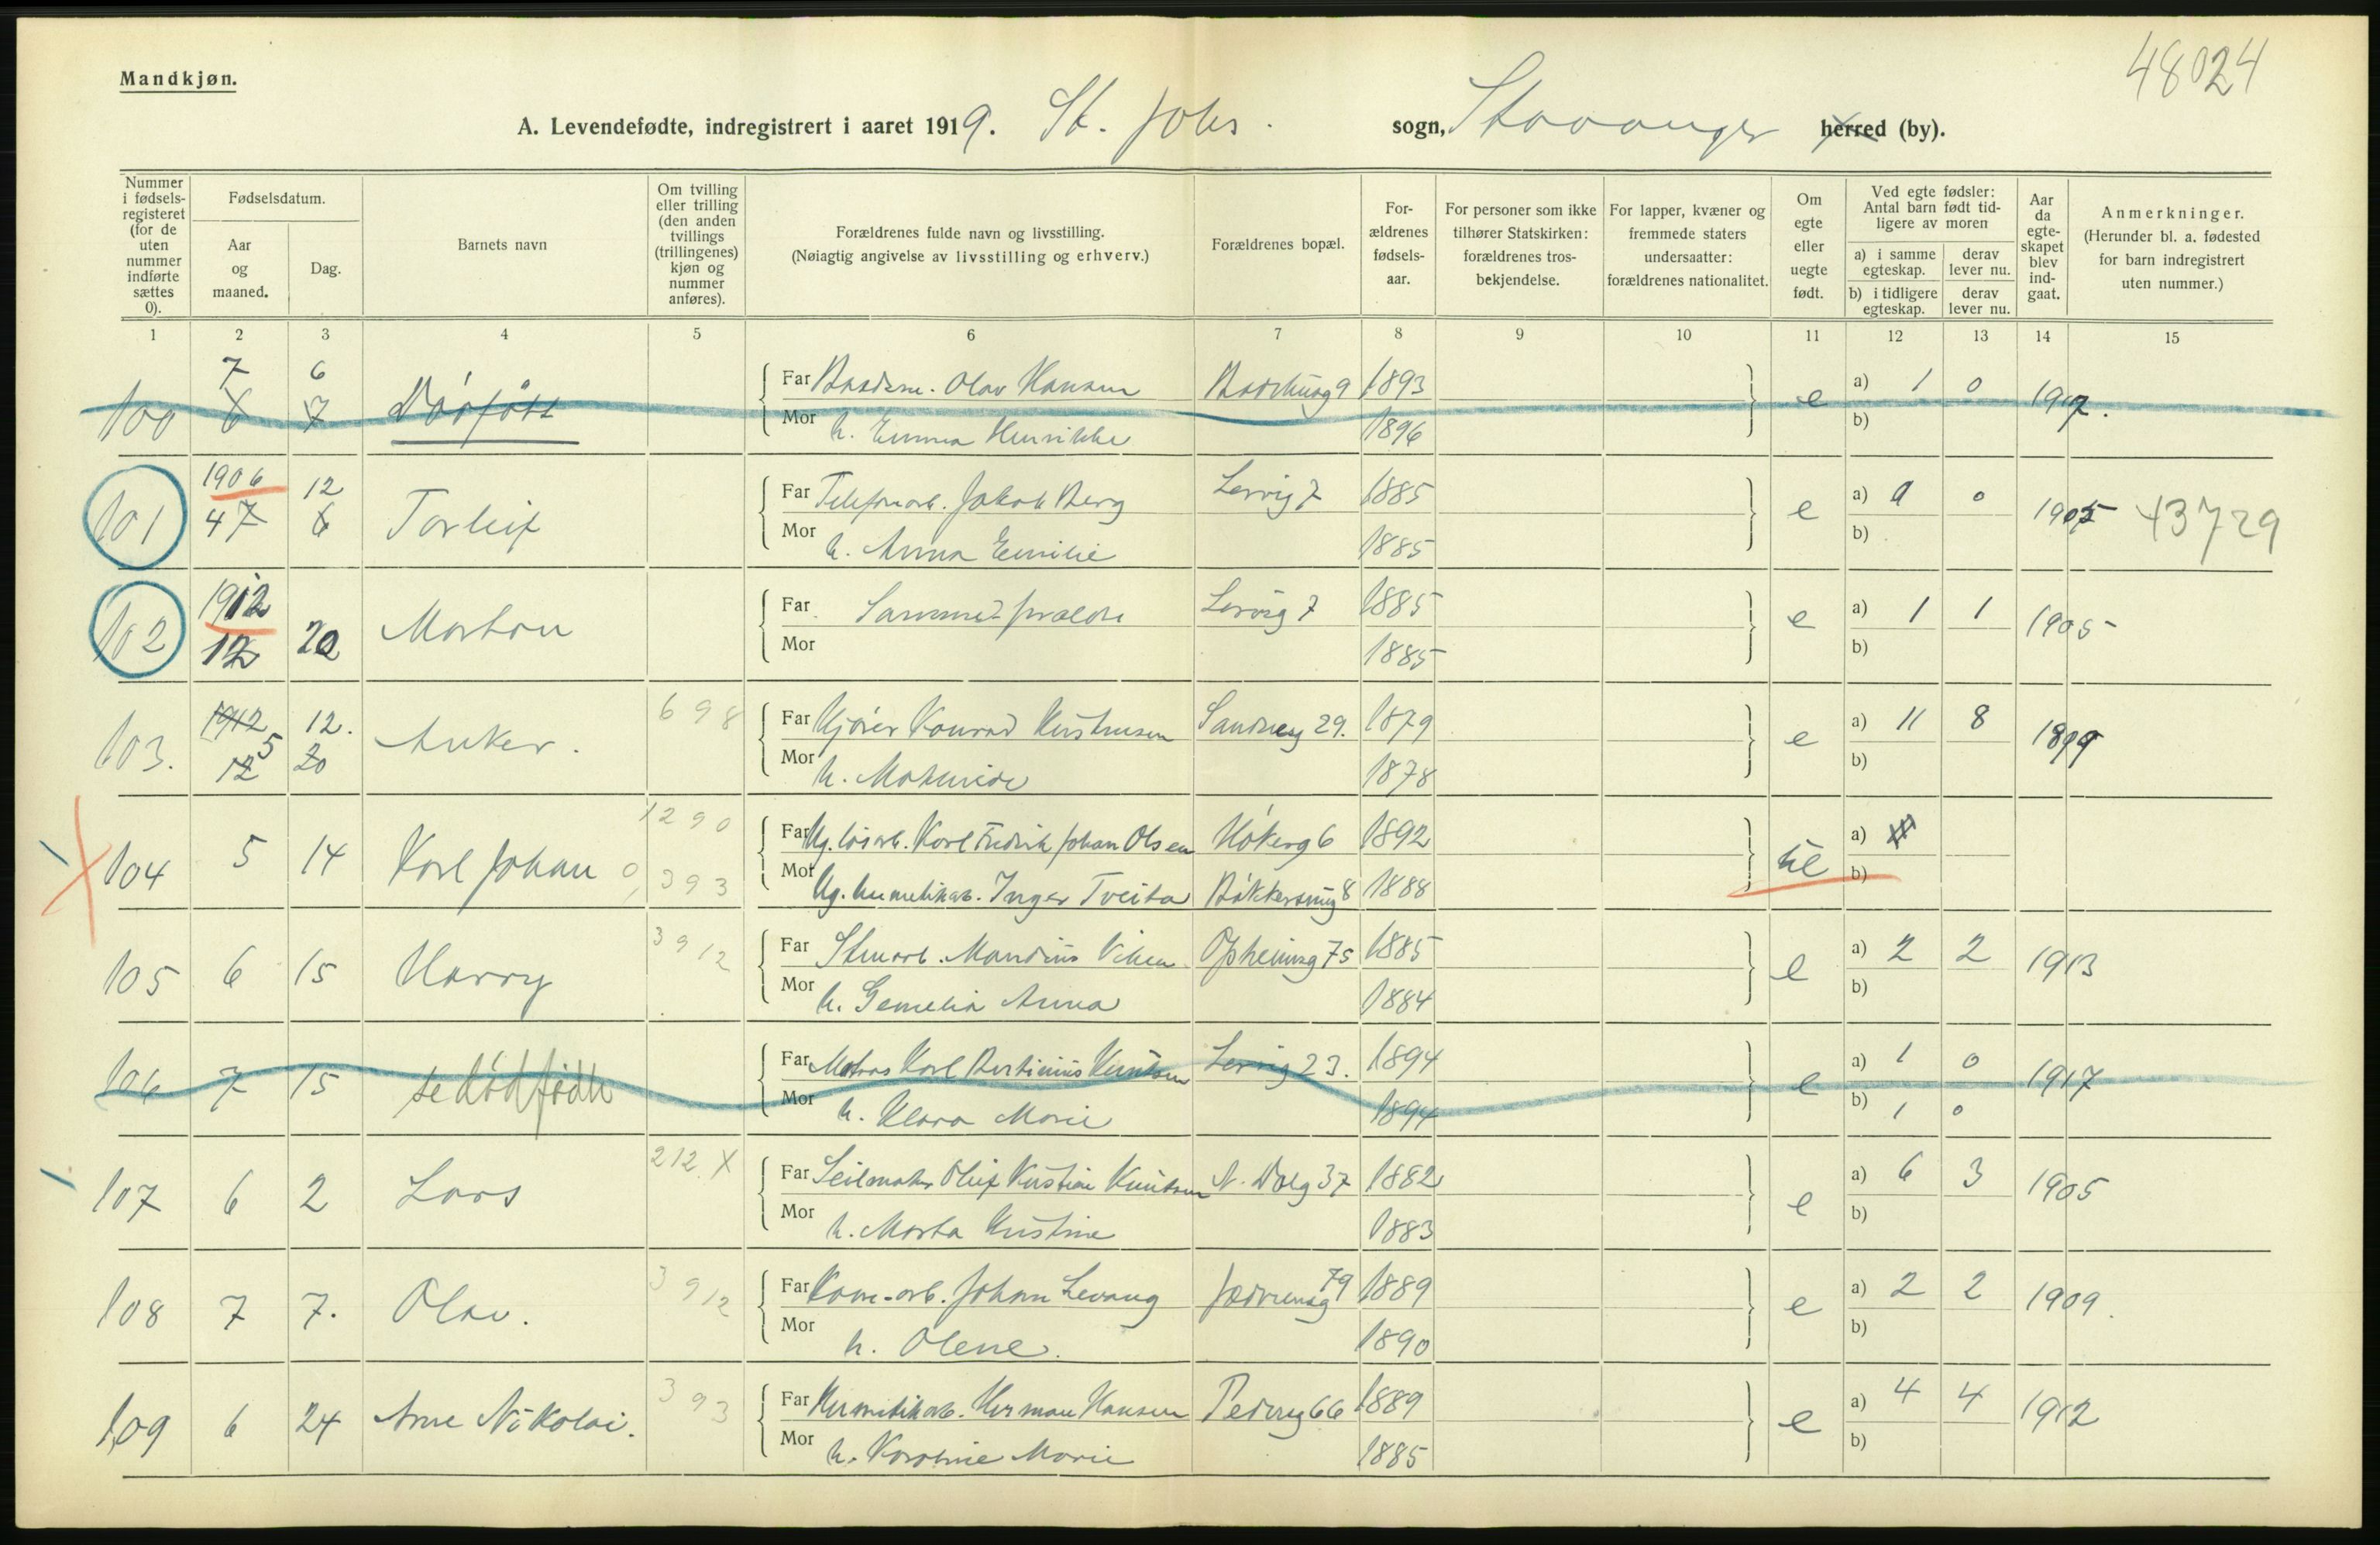 48024
Mandkjøn.
A. Levendefødte, indregistrert i aaret 1919. St. Johs. sogn, Stavanger herred (by).
Nummer i fødsels-registeret (for de uten nummer indførte sættes 0).
Fødselsdatum.
Aar og maaned.
Dag.
Barnets navn
Om tvilling eller trilling (den anden tvillings (trillingenes) kjøn og nummer anføres).
Forældrenes fulde navn og livsstilling.
(Nøiagtig angivelse av livsstilling og erhverv.)
Forældrenes bopæl.
For-ældrenes fødsels-aar.
For personer som ikke tilhører Statskirken: forældrenes tros-bekjendelse.
For lapper, kvæner og fremmede staters undersaatter: forældrenes nationalitet.
Om egte eller uegte født.
Ved egte fødsler: Antal barn født tid-ligere av moren
a) i samme egteskap.
derav lever nu.
b) i tidligere egteskap.
derav lever nu.
Aar da egte-skapet blev ind-gaat.
Anmerkninger.
(Herunder bl. a. fødested for barn indregistrert uten nummer.)
1 2 3 4 5 6 7 8 9 10 11 12 13 14 15
7 6
100 6 7 Dødfødt Far Olav Hansen 1893 e a) 1 0 1917.
Mor h. Emma Henrikke 1896 b)
1906 12
101 47 6 Torleif Far Telefonarb. Jakob Berg Lervig 7 1885 e a) 0 0 1905 43729
Mor h. Anna Emilie 1885 b)
1912
102 12 20 Morten Far Samme forældre Lervig 7 1885 e a) 1 1 1905
Mor 1885 b)
1912 12. 698
103. 5 12 20 Anker. Far Kjører Konrad Kristensen Sandveg 29. 1879 e a) 11 8 1899
Mor h. Mathilde 1878 b)
1290
104 5 14 Karl Johan 0, 393 Far Ug. løsarb. Karl Fredrik Johan Olsen Høkerg 6 1892 ue a)
Mor Ug. hermetikarb. Inger Tveita Bakkersmug 8 1888 b)
3912
105 6 15 Harry Far Stenarb. Mandius Viken Opheimsg 75 1885 e a) 2 2 1913
Mor h. Gemelia Anna 1884 b)
106 7 15 se dødfødte Far Matros Karl Bertinius Knutsen Lervig 23. 1894 e a) 1 0 1917
Mor h. Klara Marie 1894 b) 1 0
212 X
107 6 2 Lars Far Seilmaker Oluf Kristian Knutsen N. Dalg 37 1882 e a) 6 3 1905
Mor h. Marta Kristine 1883 b)
3912
108 7 7. Olav. Far Kom-arb. Johan Levang Jædrensg 79 1889 e a) 2 2 1909
Mor h. Olene. 1890 b)
393
109 6 24 Arne Nikolai. Far Hermetikarb. Herman Hansen Pederg 66 1889 e a) 4 4 1912
Mor h. Karoline Marie 1885 b)